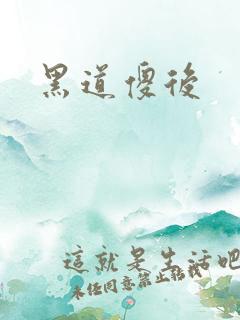 黑道傻後
這就是生活吧
未任同意禁止轉載